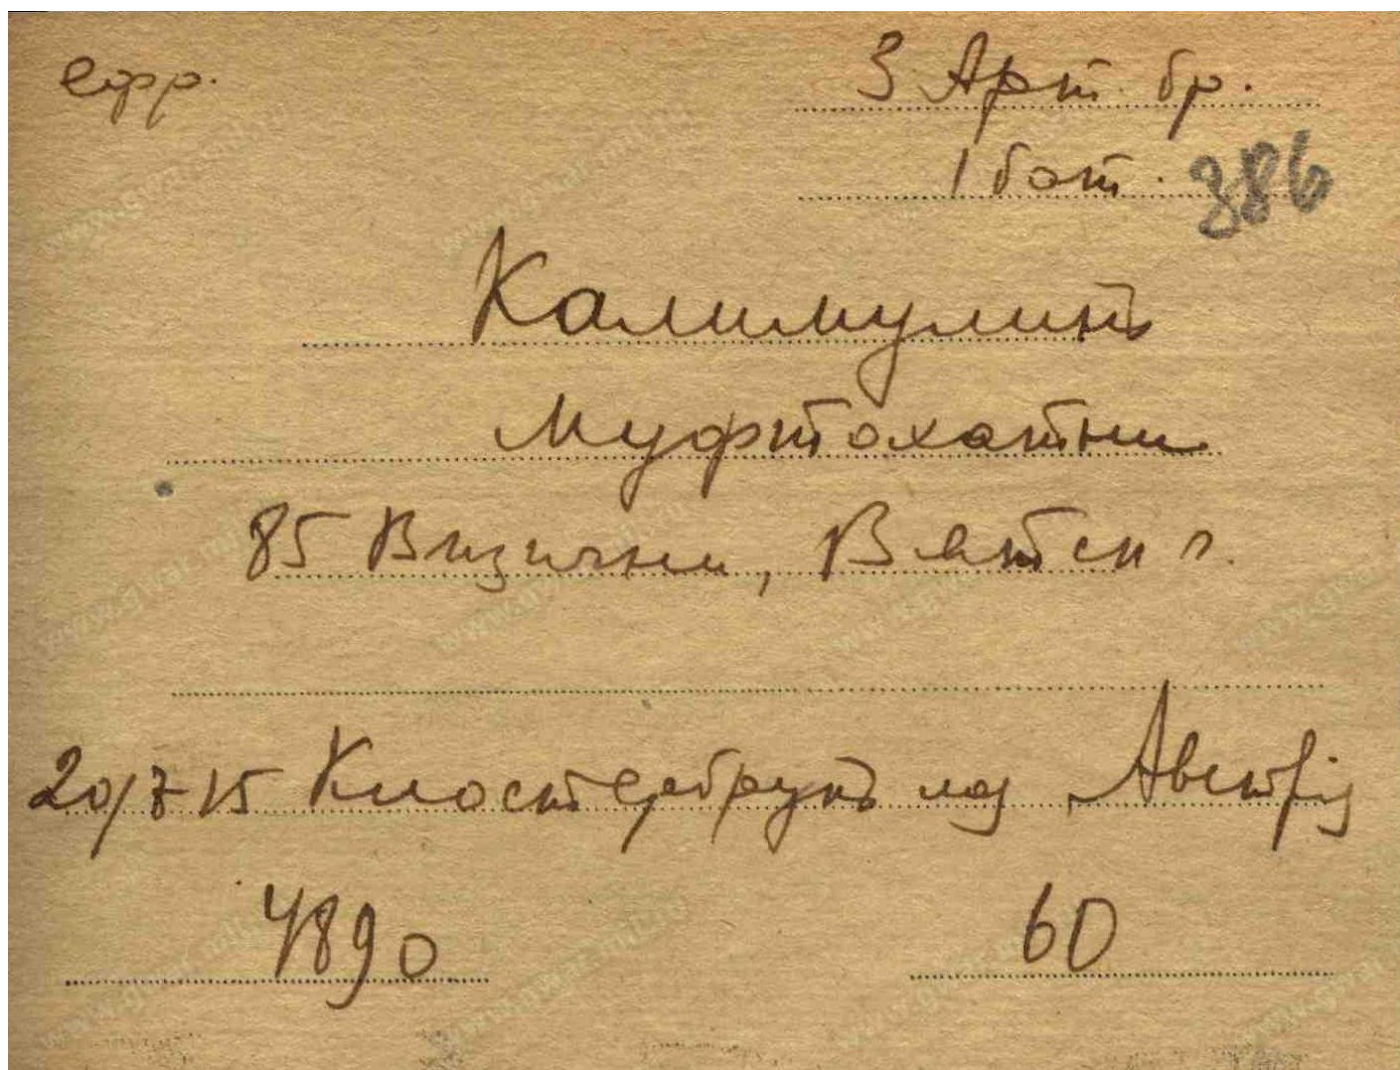 ефр.
3 Арт. бр.
1 бат. 386
Калимулинъ
Муфтахатни
85 Визични, Вятск г.
20/7 15 Клостербрукъ лаз Австрія
4890 60